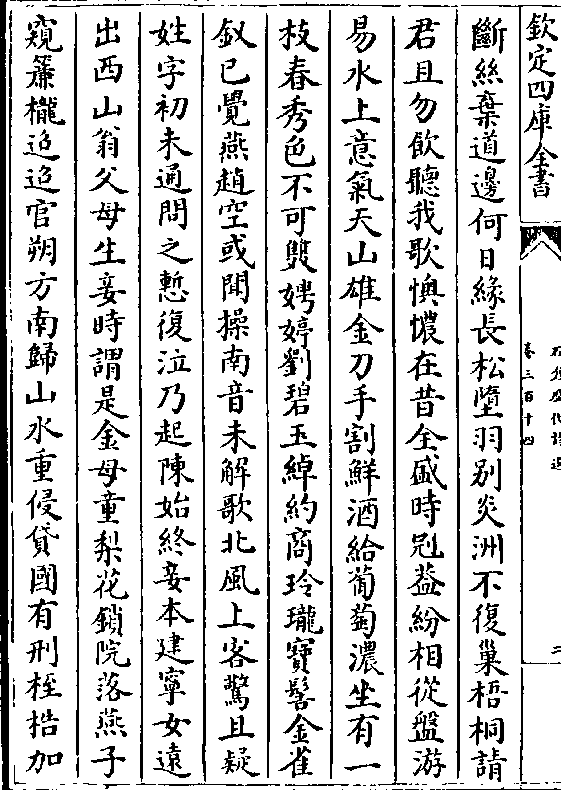 欽定四庫全書
卷三百十四
二
斷絲棄道邊何日緣長松墮羽别炎洲不復巢梧桐請
君且勿飲聽我歌懊憹在昔全盛時冠葢紛相從盤游
易水上意氣天山雄金刀手割鮮酒給葡萄濃坐有一
枝春秀色不可雙娉婷劉碧玉綽約商玲瓏寶髻金雀
釵已覺燕趙空或聞操南音未解歌北風上客驚且疑
姓字初未通問之慙復泣乃起陳始終妾本建寧女遠
出西山翁父母生妾時謂是金母童梨花鎖院落燕子
窺簾櫳迢迢官朔方南歸山水重侵貸國有刑桎梏加